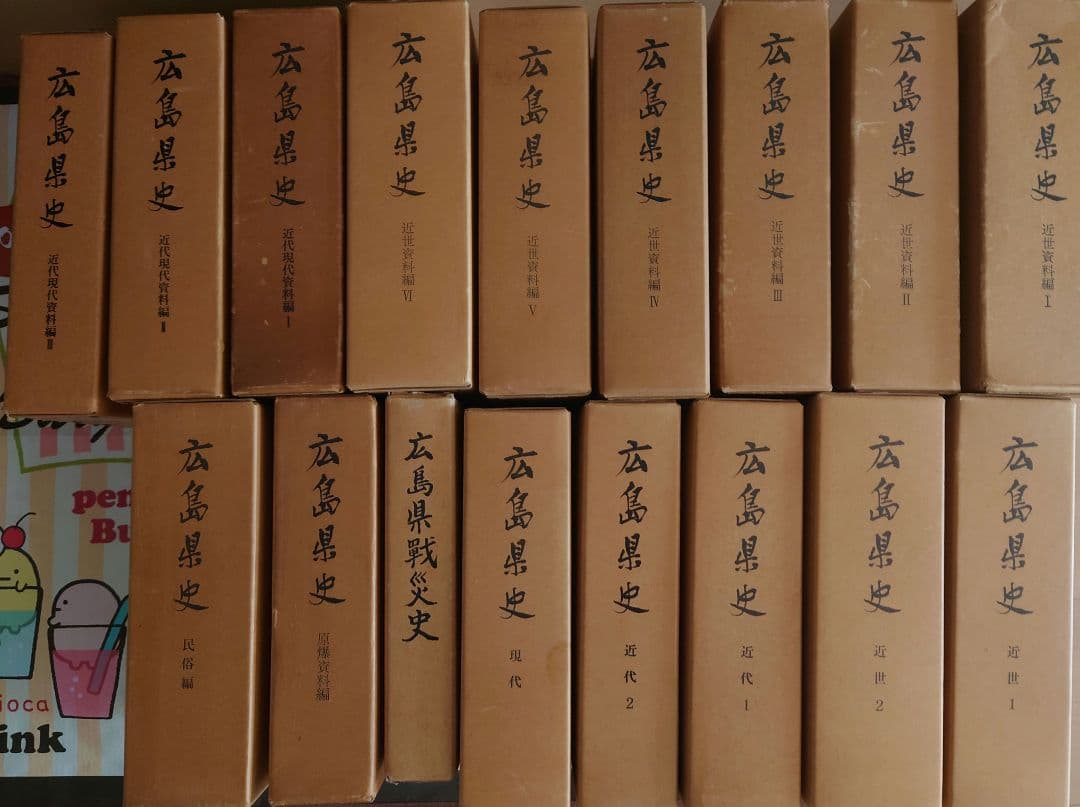 広島県史 近代現代資料編Ⅲ
広島県史 近代現代資料編Ⅱ
広島県史 近代現代資料編Ⅰ
広島県史 近世資料編Ⅵ
広島県史 近世資料編Ⅴ
広島県史 近世資料編Ⅳ
広島県史 近世資料編Ⅲ
広島県史 近世資料編Ⅱ
広島県史 近世資料編Ⅰ
広島県史 民俗編
広島県史 原爆資料編
広島県戰災史
広島県史 現代
広島県史 近代2
広島県史 近代1
広島県史 近世2
広島県史 近世1
pen
Bu
ioca
ink